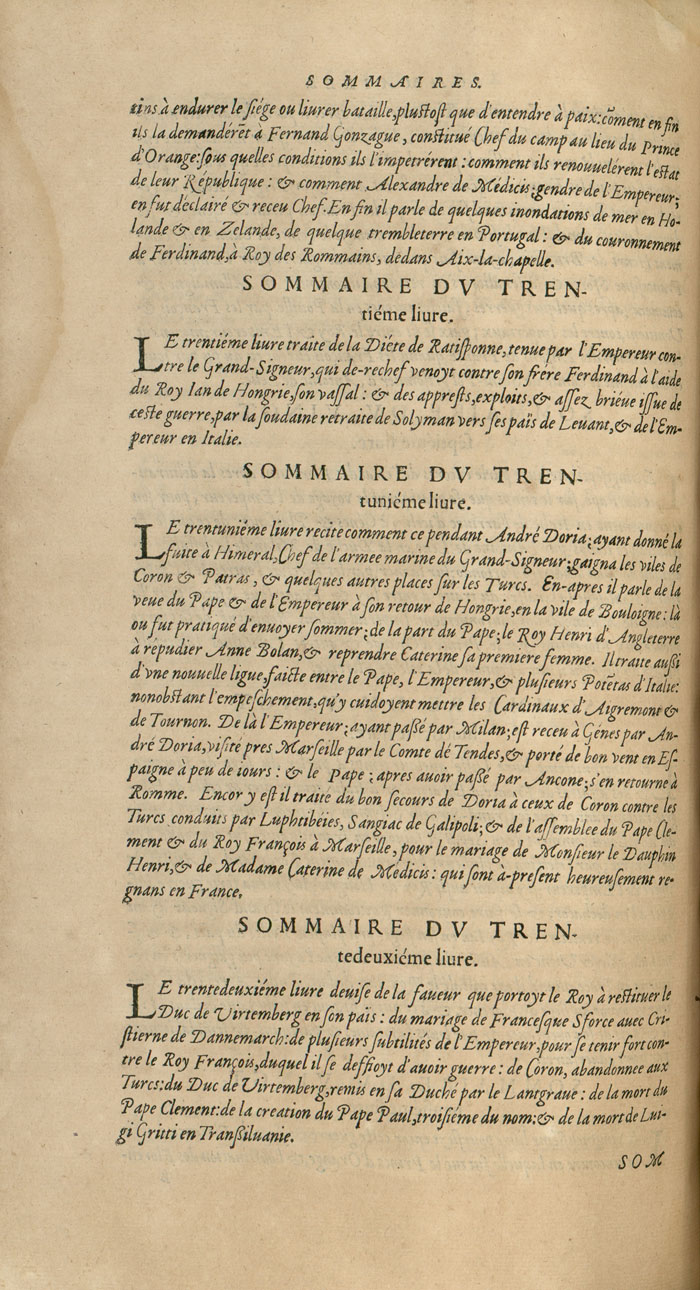 SOMMAIRES.
tins à endurer le siége ou liurer bataille,plustost que d'entendre à paix:cõment en fin
ils la demandérẽt à Fernand Gonzague, constitué Chef du camp au lieu du Prince
d'Orange:sous quelles conditions ils l'impetrérent : comment ils renouuelérent l'estat
de leur République : & comment Alexandre de Médicis;gendre de l'Empereur;
en fut déclairé & receu Chef. En fin il parle de quelques inondations de mer en Ho-
lande & en Zelande, de quelque trembleterre en Portugal : & du couronnement
de Ferdinand,à Roy des Rommains, dedans Aix-la-chapelle.
SOMMAIRE DV TREN-
tiéme liure.
LE trentiéme liure traite de la Diéte de Ratisponne, tenue par l'Empereur con-
tre le Grand-Signeur,qui de-rechef venoyt contre son frére Ferdinand à l'aide
du Roy Ian de Hongrie,son vassal : & des apprests,exploits,& assez briéue issue de
ceste guerre,par la soudaine retraite de Solyman vers ses païs de Leuant,& de l'Em-
pereur en Italie.
SOMMAIRE DV TREN-
tuniéme liure.
LE trentuniéme liure recite comment ce pendant André Doria;ayant donné la
fuite à Himeral,Chef de l'armee marine du Grand-Signeur;gaigna les viles de
Coron & Patras, & quelques autres places sur les Turcs. En-apres il parle de la
veue du Pape & de l'Empereur à son retour de Hongrie,en la vile de Bouloigne: là
ou fut pratiqué d'enuoyer sommer;de la part du Pape;le Roy Henri d'Angleterre
à répudier Anne Bolan,& reprendre Caterine sa premiere femme. Il traite aussi
d'vne nouuelle ligue,faicte entre le Pape, l'Empereur,& plusieurs Potẽtas d'Italie:
nonobstant l'empeschement,qu'y cuidoyent mettre les Cardinaux d'Aigremont &
de Tournon. De là l'Empereur;ayant passé par Milan;est receu à Génes par An-
dré Doria,visité pres Marseille par le Comte de Tendes,& porté de bon vent en Es-
paigne à peu de iours : & le Pape ; apres auoir passé par Ancone;s'en retourne à
Romme. Encor y est il traité du bon secours de Doria à ceux de Coron contre les
Turcs conduits par Luphtibéies, Sangiac de Galipoli;& de l'assemblee du Pape Cle-
ment & du Roy François à Marseille, pour le mariage de Monsieur le Dauphin
Henri,& de Madame Caterine de Medicis : qui sont à-present heureusement re-
gnans en France.
SOMMAIRE DV TREN-
tedeuxiéme liure.
LE trentedeuxiéme liure deuise de la faueur que portoyt le Roy à restituer le
Duc de Virtemberg en son païs : du mariage de Francesque Sforce auec Cri-
stierne de Dannemarch:de plusieurs subtilités de l'Empereur,pour se tenir fort con-
tre le Roy François,duquel il se deffioyt d'auoir guerre : de Coron, abandonnee aux
Turcs:du Duc de Virtemberg,remis en sa Duché par le Lantgraue : de la mort du
Pape Clement:de la creation du Pape Paul,troisiéme du nom:& de la mort de Lui-
gi Gritti en Transsiluanie.
SOM